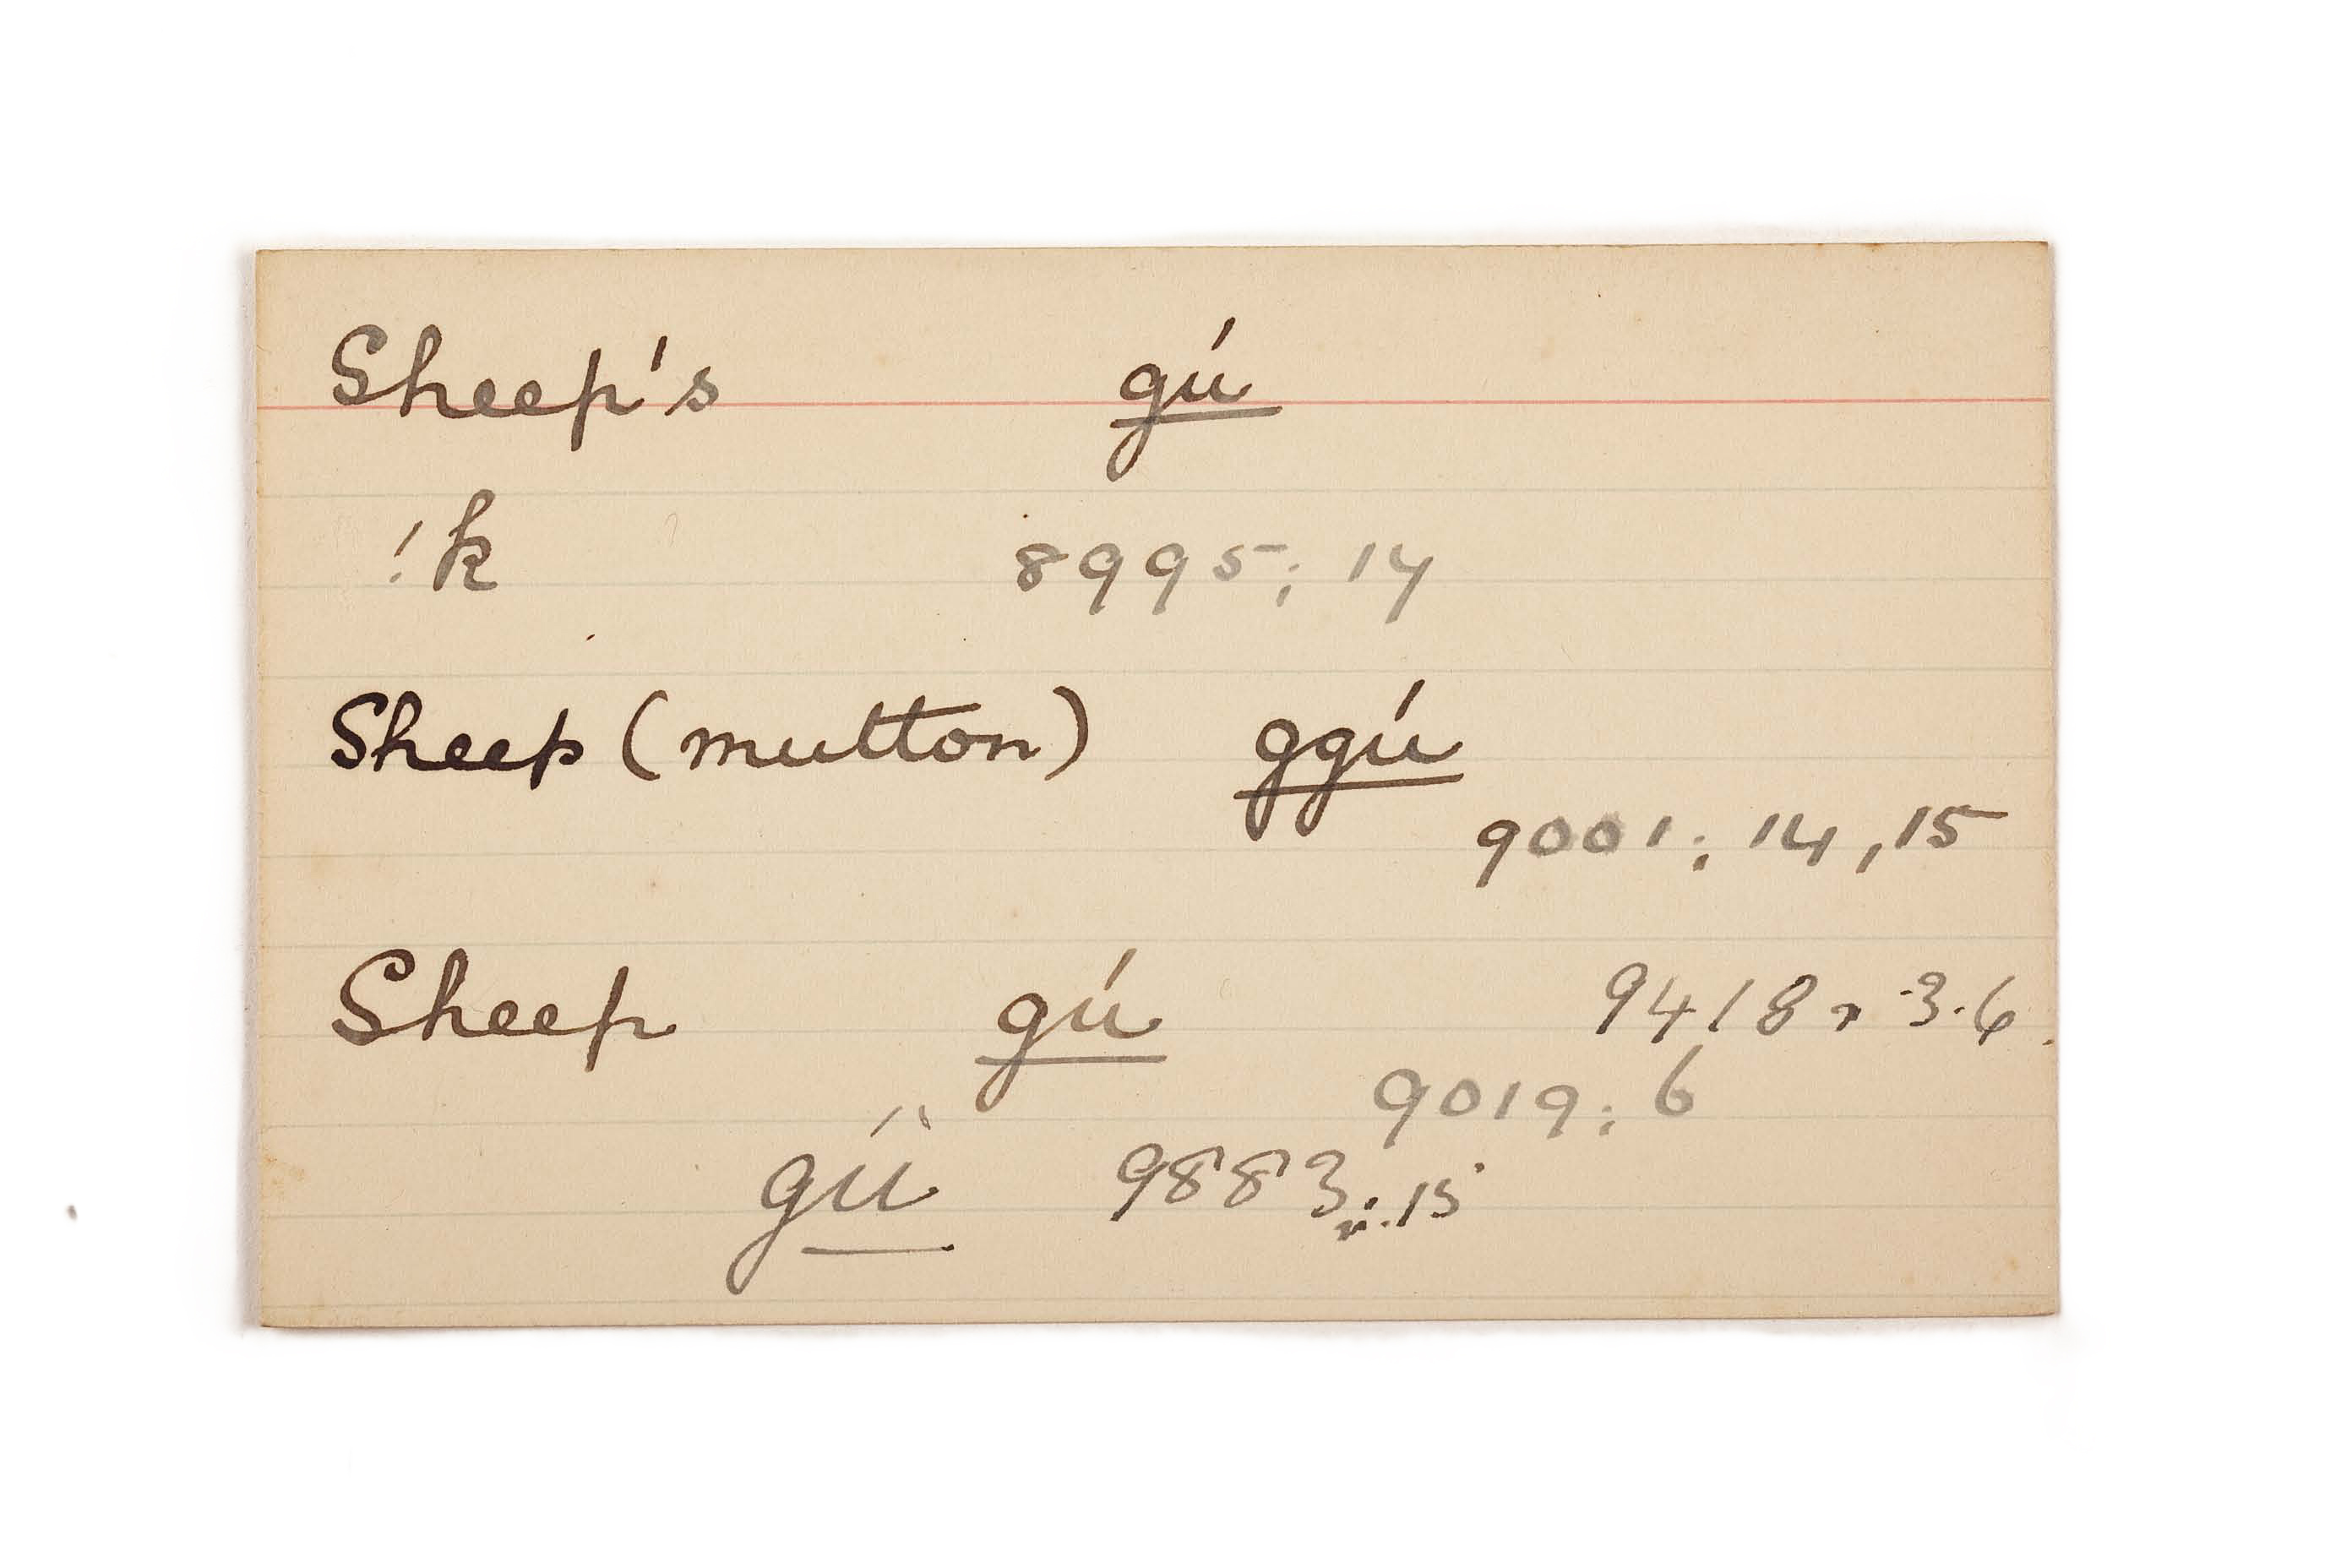 Sheep's gú
!k 8995; 14
Sheep (mutton) ggú
9001; 14, 15
Sheep gú 9418 r 3.6.
9019; 6
gú 9883 15